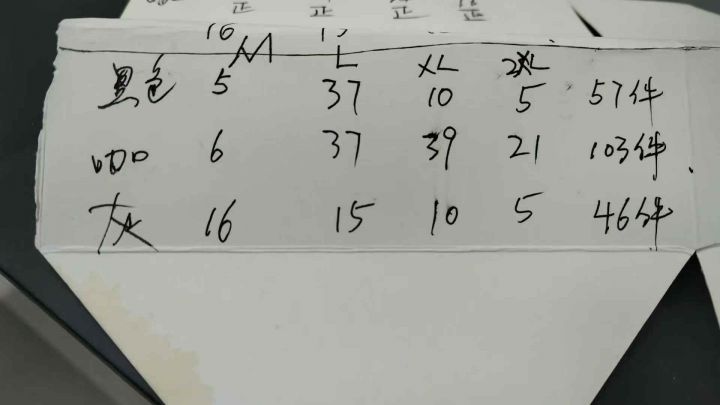 正 正 正 正
16
M L XL 2XL
黑色 5 37 10 5 57件
咖 6 37 39 21 103件
灰 16 15 10 5 46件